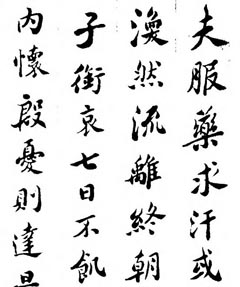 夫服藥求汗或
渙然流離終朝
子銜哀七日不飢
内懷殷憂則達旦